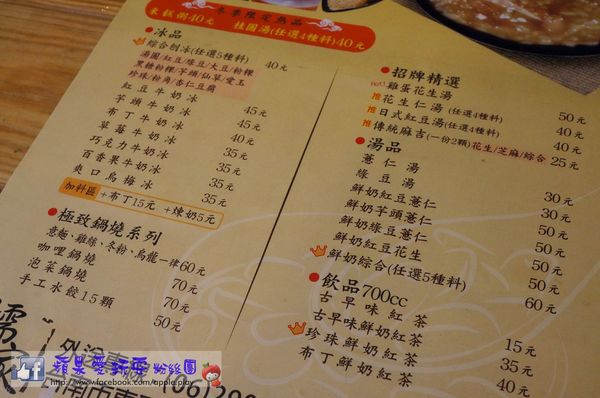 冬季限定熱品
桂圓湯(任選4種料)40元
冰品
綜合刨冰(任選5種料) 40元
湯圓/紅豆/綠豆/大豆/粉粿
黑糖粉粿/芋頭/仙草/愛玉
珍珠/粉角/杏仁豆腐
紅豆牛奶冰 45元
芋頭牛奶冰 45元
布丁牛奶冰 40元
草莓牛奶冰 35元
巧克力牛奶冰 35元
百香果牛奶冰 35元
爽口烏梅冰 35元
加料區 +布丁15元 +煉奶5元
極致鍋燒系列
意麵、雞絲、冬粉、烏龍一律60元
咖哩鍋燒 70元
泡菜鍋燒 70元
手工水餃15顆 50元
招牌精選
雞蛋花生湯 50元
推 花生仁湯(任選4種料) 40元
推 日式紅豆湯(任選4種料) 40元
推 傳統麻吉(一份2顆)花生/芝麻/綜合 25元
湯品
薏仁湯 30元
綠豆湯 30元
鮮奶紅豆薏仁 50元
鮮奶芋頭薏仁 50元
鮮奶綠豆薏仁 50元
鮮奶紅豆花生 50元
鮮奶綜合(任選5種料) 60元
飲品700cc
古早味紅茶 15元
古早味鮮奶紅茶 35元
珍珠鮮奶紅茶 40元
布丁鮮奶紅茶
蘋果愛玩耍 粉絲團
http://www.facebook.com/apple.play